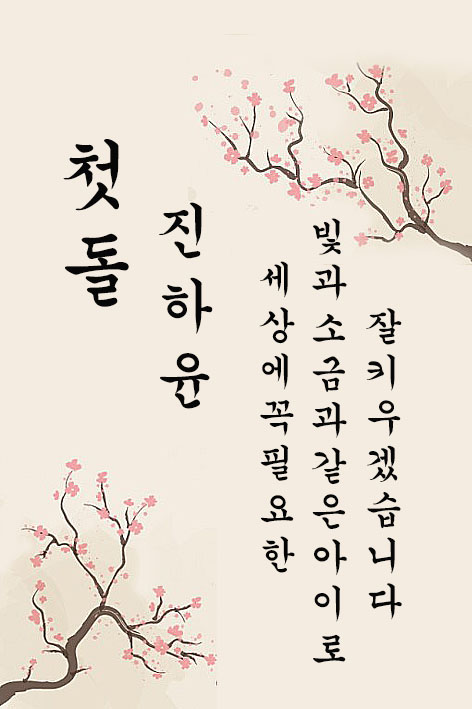 첫돌
진하윤
세상에꼭필요한
빛과소금과같은아이로
잘키우겠습니다